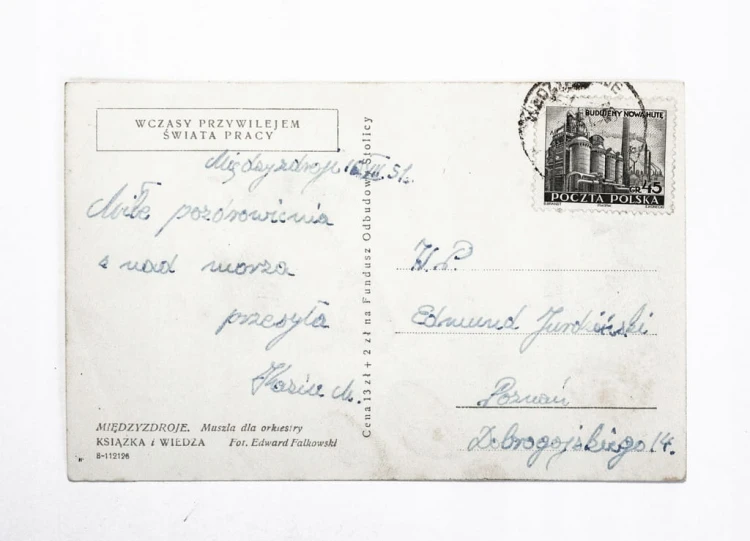 WCZASY PRZYWILEJEM
ŚWIATA PRACY
Międzyzdroje 51.
Miłe pozdrowienia
z nad morza
przesyła
Kazia M.
MIĘDZYZDROJE. Muszla dla orkiestry
KSIĄŻKA i WIEDZA Fot. Edward Falkowski
8-112126
Cena 13 zł + 2 zł na Fundusz Odbudowy Stolicy
BUDUJEMY NOWĄ HUTĘ
GR 45
POCZTA POLSKA
W.P.
Edmund
Poznań
14.